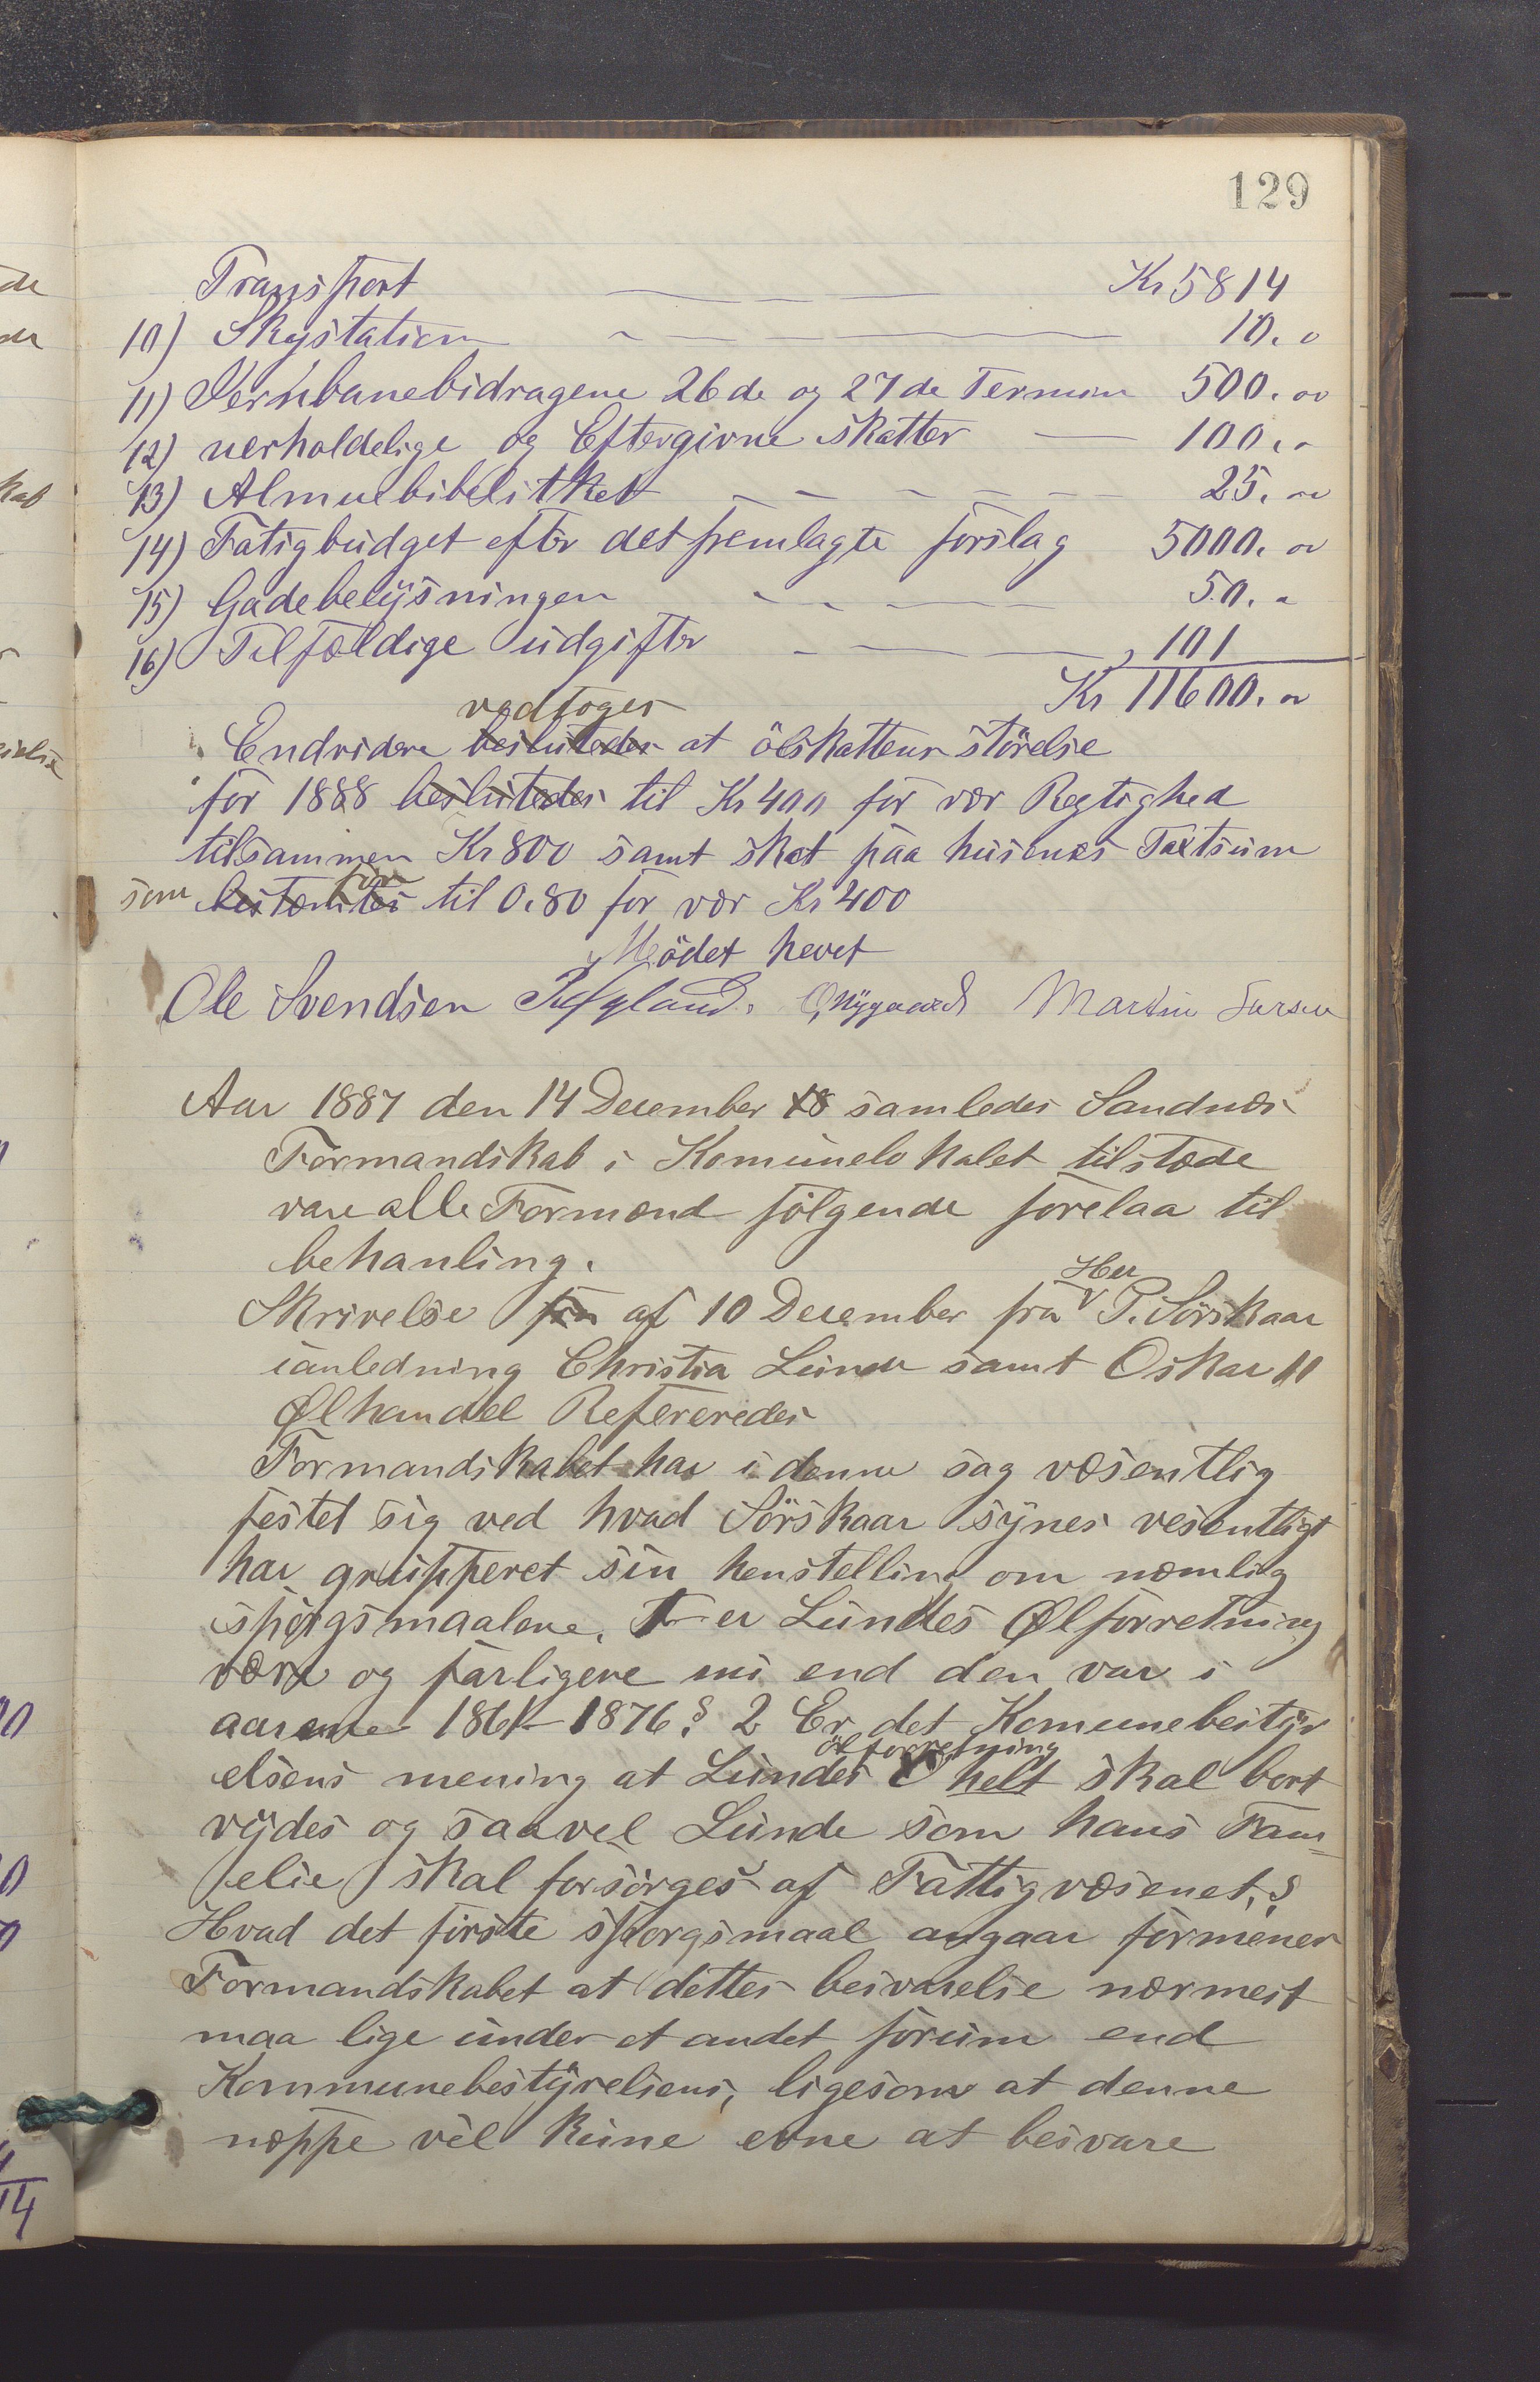 129
Transport Kr 5814
10) Skystation 10. 0
11) Jernbanebidragene 26de og 27de Termin 500. 00
12) uerholdelige og Eftergivne skatter 100. 0
13) Almuebibelitket 25. 00
14) Fatigbudget efter det fremlagte forslag 5000. 00
15) Gadebelysningen 50. 0
16) Tilfældige udgifter 101
Kr 11600. 00
vedtoges
Endvidere besluttedes at ölskattens störelse
for 1888 besluttedes til Kr 400 for vær Regtighed
tilsammen Kr 800 samt skat paa husenes Taxtsum
som bestemtes til 0.80 for vær Kr 400
Mödet hevet
Ole Svendsen O. Nygaard Martin Larsen
Aar 1887 den 14 December 18 samledes Sandnæs
Formandskab i Komunelokalet tilstæde
vare alle Formænd fölgende forelaa til
behanling.
Skrivelse fra af 10 December fra Herr P. Sörskaar
ianledning Christia Lunde samt Oskar II
Ølhandel Refereredes
Formandskabet har i denne sag væsentlig
festet sig ved hvad Sörskaar synes vesentligt
har grupperet sin henstelling om næmlig
spörgsmaalene. 1 er Lundes Ølforretning
være og farligere nu end den var i
aarene 1861-1876? 2 Er det Komunebestyr
ölforretning
elsens mening at Lundes helt skal bort
rydes og saavel Lunde som hans Fam-
elie skal forsörges af Fattigvæsenet?
Hvad det förste spörgsmaal angaar formener
Formandskabet at dettes besvarelse nærmest
maa lige under et andet forum end
Kommunebestyrelsens, ligesom at denne
næppe vil kune evne at besvare